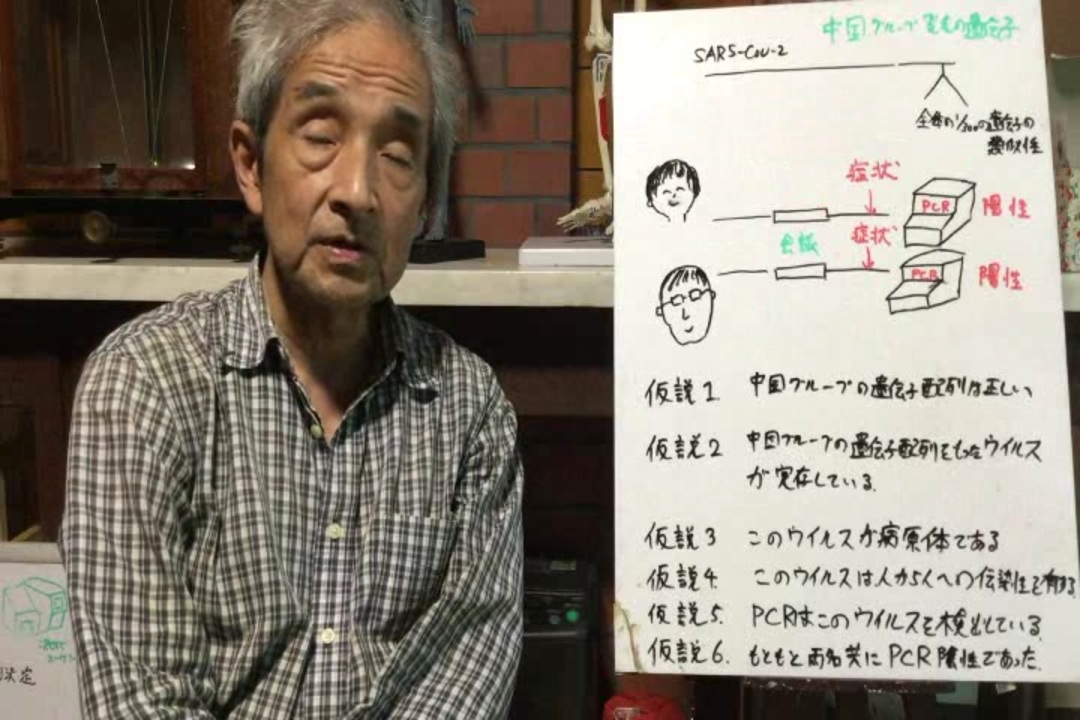 中国グループ発見の遺伝子
SARS-CoV-2
全体の1/300の遺伝子の
類似性
症状
PCR
陽性
会談
症状
PCR
陽性
仮説1 中国グループの遺伝子配列は正しい
仮説2 中国グループの遺伝子配列をもったウイルス
が実在している。
仮説3 このウイルスが病原体である
仮説4. このウイルスは人から人への伝染性を有する
仮説5. PCRはこのウイルスを検出している
仮説6. もともと両名共にPCR陽性であった。
決定